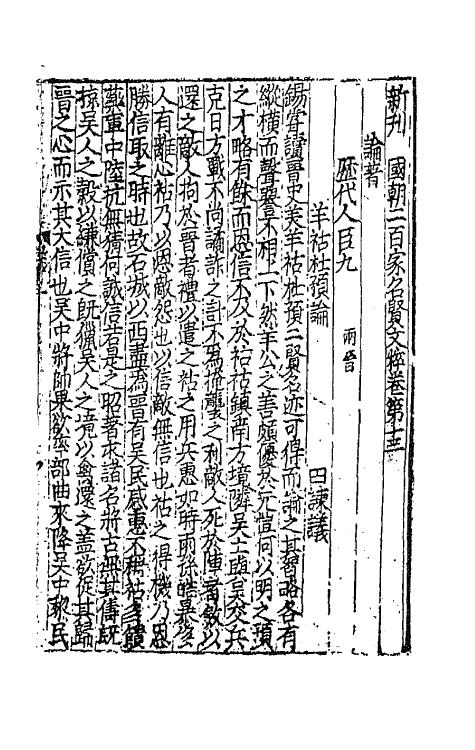 新刊 國朝二百家名賢文粹卷第十三
論著
歷代人臣九 兩晉
羊祜杜預論 田諫議
錫嘗讀晉史美羊祜杜預二賢名迹可得而論之其智略各有
縱橫而聲器不相上下然羊公之善頗優於元凱何以明之預
之才略有餘而恩信不及於祜祜鎮南方境隣吳土與吳交兵
克日方戰不尚譎詐之計不為掩襲之利敵人死於陣者斂以
還之敵人拘於晉者禮以遣之祜之用兵惠如時雨孫皓暴殘
人有離心祜乃以恩敵怨也以信敵無信也祜之得機乃恩
勝信取之時也故石城以西盡為晉有吳民感惠不稱祜名饋
藥軍中陸抗無猜何誠信若是之昭著求諸名將古無其儔既
掠吳人之穀以縑償之既獵吳人之境以禽還之蓋欲從其歸
晉之心而示其大信也吳中將帥果欲率部曲來降吳中黎民